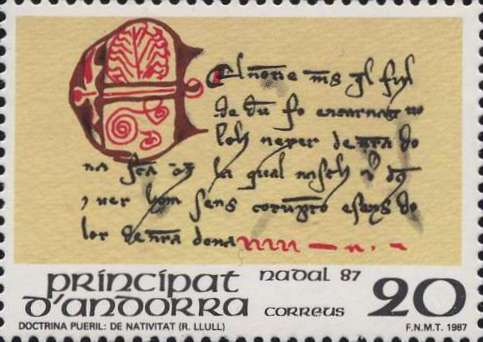 El none ms fiyl
de du fo encarnat uo
lch nexer de nra do
na sta la qual nasch
uer hom sens e sens do
lor de nra dona
principat
d'andorra
nadal 87
correus
20
DOCTRINA PUERIL: DE NATIVITAT (R. LLULL)
F.N.M.T. 1987